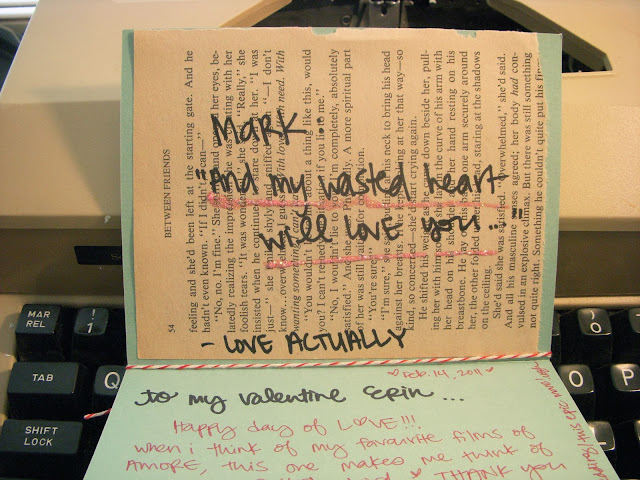 MARK...
"And my wasted heart
will LOVE you..."
- LOVE ACTUALLY
♡ Feb. 14, 2011 ♡
to my valentine Erin ...
Happy day of LOVE!!!
when i think of my favourite films of
AMORE, this one makes me think of
THANK YOU
54 BETWEEN FRIENDS
feeling and she'd been left at the starting gate. And he
hadn't even known. "If I didn't can—"
"No, no. I'm fine." She hand on her eyes, be-
latedly realizing the he was with her
foolish tears. "It was she "Really," she
insisted when he continued stare down at her. "I was
just—" she shyly and sniffed "—I don't
know...overwhelmed, I guess. With love. With need. With
wanting something I can't
"You wouldn't about a thing like this, would
you? I can't if you lie to me."
"No, I wouldn't lie to you. I'm completely, absolutely
satisfied." And she Physically. A more spiritual part
of her was still waiting for
"You're sure?"
"I'm sure," she said, his neck to bring his head
against her breasts. He kept at her that way—so
kind, so concerned—she'd start crying again.
He shifted his weight down beside her, pull-
ing her with him so she lay in the curve of his arm with
her head on his her hand resting on his
breastbone. He lay one arm securely around
her, the other folded head, staring at the shadows
on the ceiling.
She'd said she was satisfied. "Overwhelmed," she'd said.
And all his masculine senses agreed; her body had con-
vulsed in an explosive climax. But there was still something
not quite right. Something he couldn't quite put his
MAR
REL
!
1
TAB
Q
SHIFT
LOCK